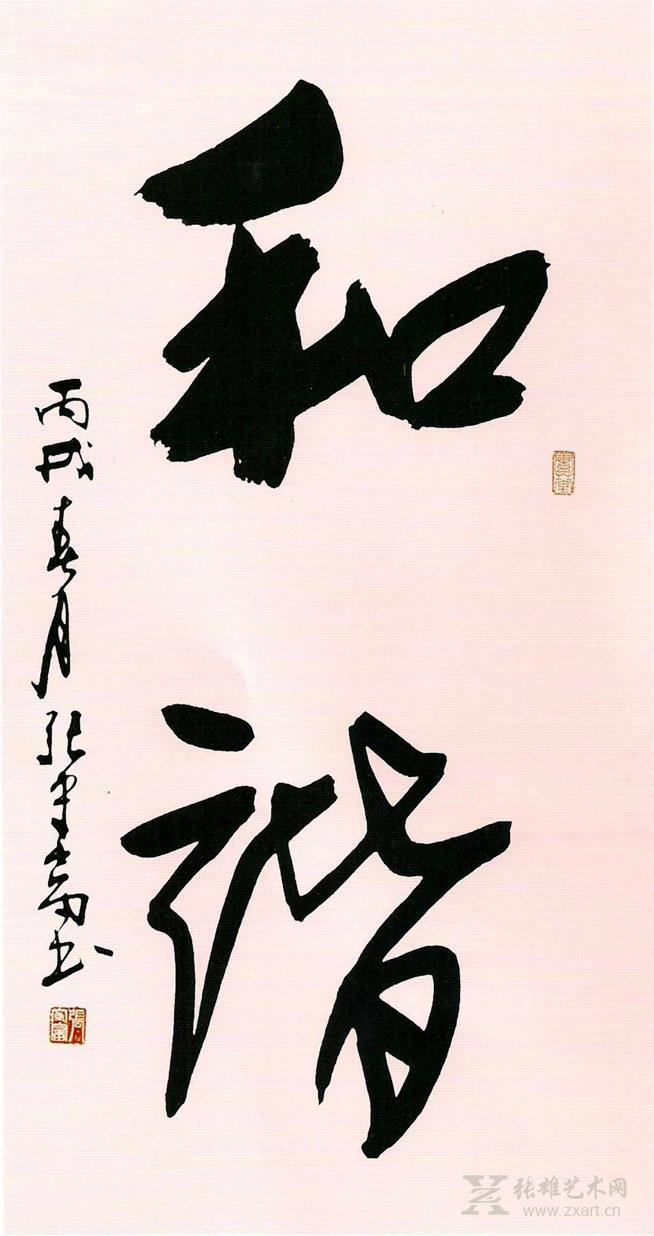 和諧
丙戌春月張書
张雄艺术网
www.zxart.cn